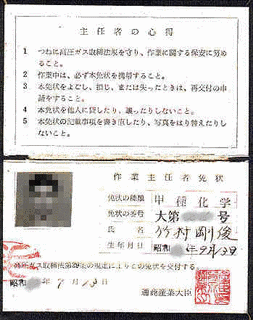 主任者の心得
1 つねに高圧ガス取締法規を守り、作業に関する保安に努め
ること。
2 作業中は、必ず本免状を携帯すること。
3 本免状をよごし、損じ、または失ったときは、再交付の申
請をすること。
4 本免状を他人に貸したり、譲ったりしないこと。
5 本免状の記載事項を書き直したり、写真をはり替えたりし
ないこと。
作業主任者免状
免状の種類 甲種化学
免状の番号 大第 号
氏名 竹村剛俊
生年月日 昭和 年9月3日
高圧ガス取締法第29条の規定によりこの免状を交付する
昭和 年 7月13日
通商産業大臣